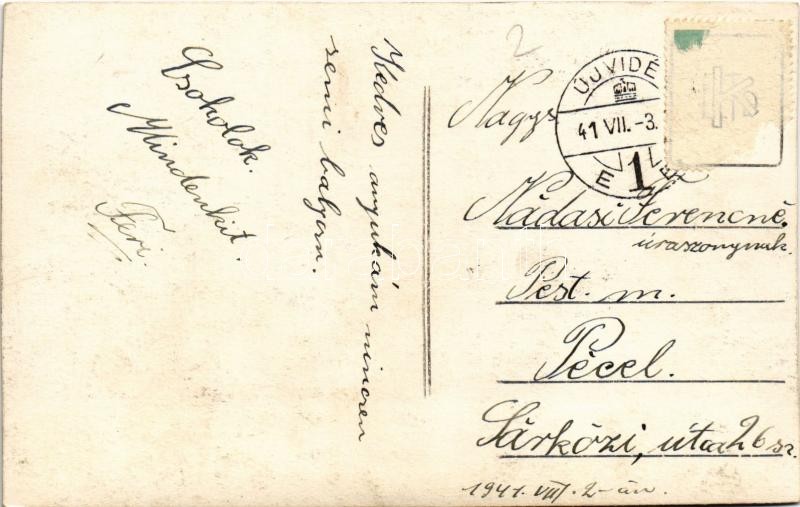 Kedves anyukám nincsen
semi baljom.
Csokolok.
Mindenkit.
Feri.
2
ÚJVIDÉ
41 VII.-3.
1
Nagys
Nádasi Ferencné.
úraszonynak.
Pest. m.
Pécel.
Sárközi, útca 26 sz.
1941. VIII. 2-án.